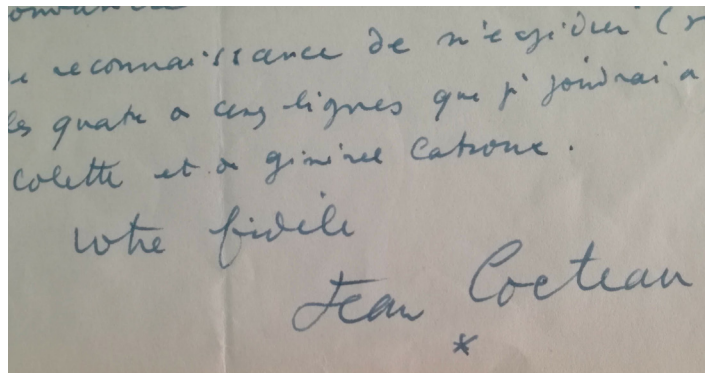 de reconnaissance de m'expédier (
les quatre a cinq lignes que je joindrai a
Colette et du général Catroux.
Votre fidèle
Jean Cocteau
*